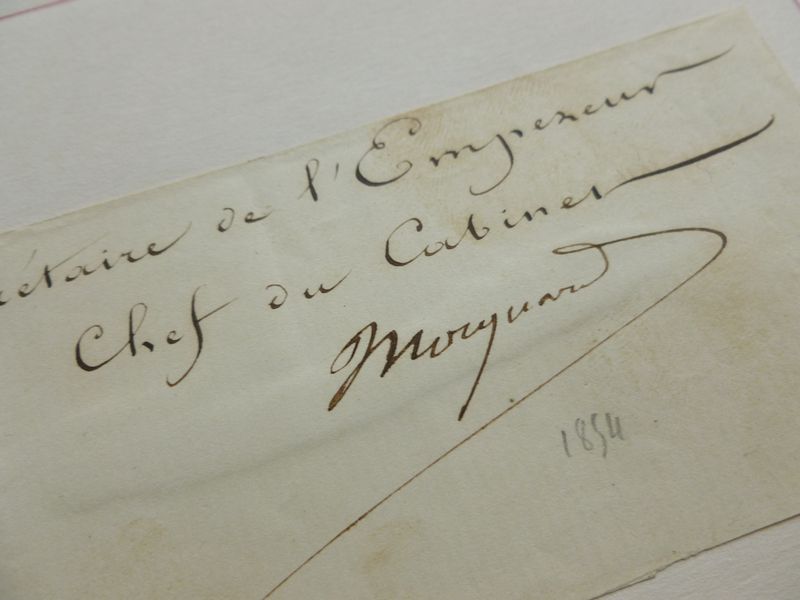 étaire de l'Empereur
Chef du Cabinet
Mocquard
1854